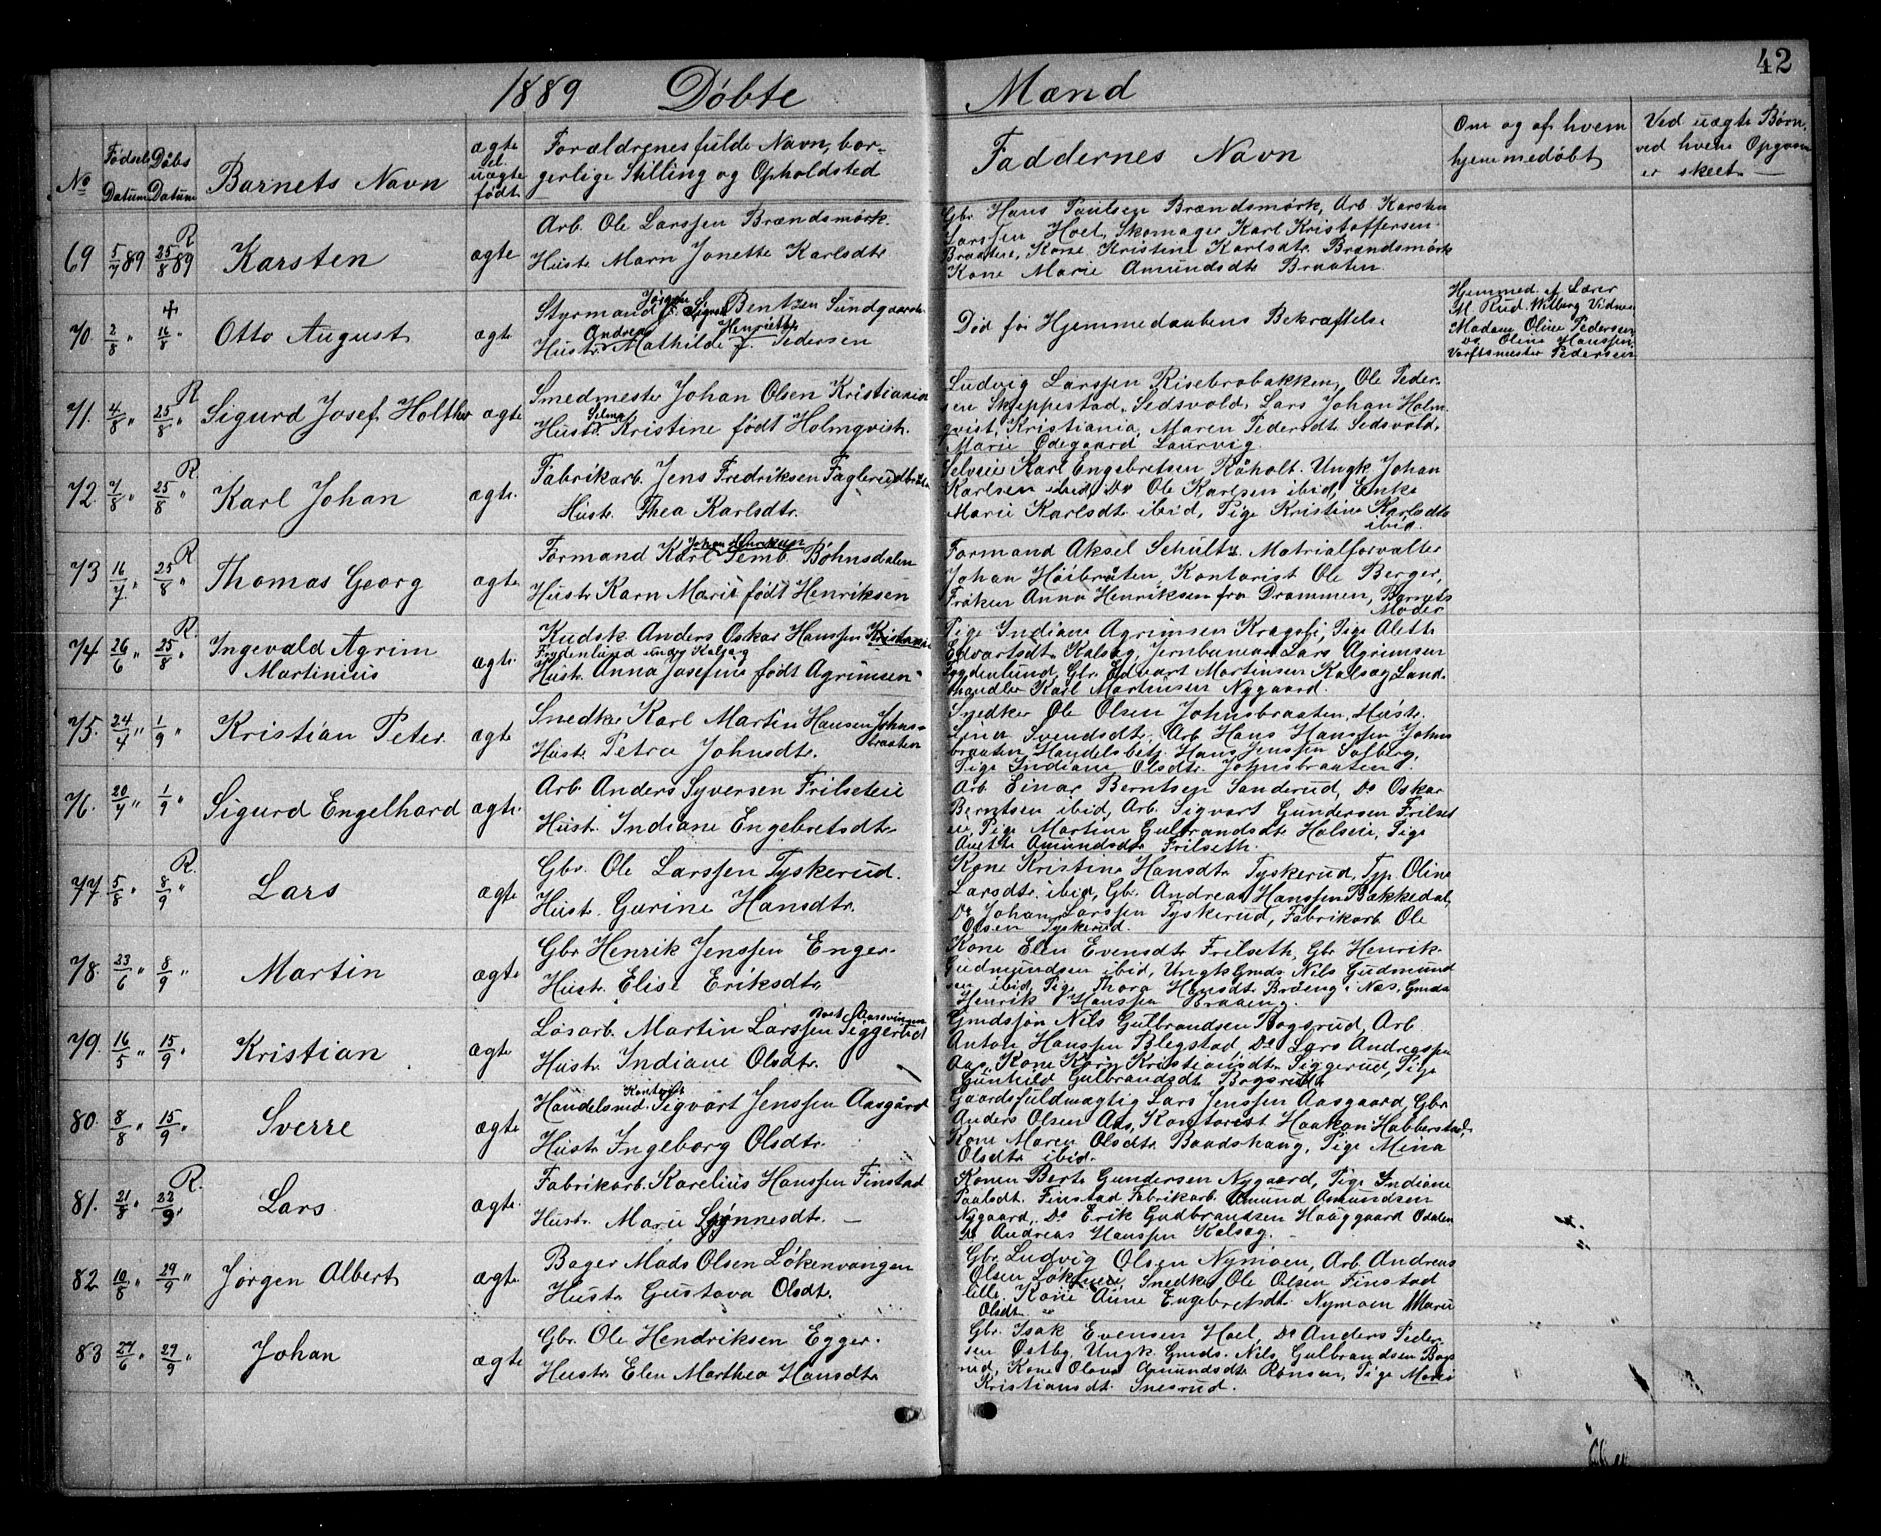 42
1889 Døbte Mænd
No
Fødsels Datum
Daabs Datum
Barnets Navn
ægte el. uægte født
Forældrenes fulde Navn, bor-
gerlige Stilling og Opholdsted
Faddernes Navn
Om og af hvem
hjemmedøbt
Ved uægte Børn,
ved hvem Opgaven
er skeet
69 5/7 89 25/8 89 R Karsten ægte
Arb. Ole Larssen Brændsmørk.
Hustr. Marn Jonette Karlsdtr
Gbr. Hans Paulsen Brændsmørk, Arb Karsten
Larssen Hoel, Skomager Karl Kristoffersen
Braaten, Kone Kristine Karlsdtr. Brændsmørk
Kone Marie Amundsdtr Braaten.
70. 2/8 " + 16/8 " Otto August ægte
Styrmand Jørgen Bentzen Sundgaarden
Andrea Henriette
Hustr. Mathilde f. Pedersen
Død før Hjemmedaabens Bekræftelse
Hjemmed. af Lærer
M. Rud. Wilberg Vidner
Madame Oline Pedersen
og Olena Hanssen
Værftsmester Pedersen
71. 4/8 " 25/8 " R Sigurd Josef Holther ægte
Smedmester Johan Olsen Kristiania
Selma
Hustr. Kristine født Holmqvist.
Ludvig Larssen Risebrobakken, Ole Peder-
sen Skeppestad, Sedsvold, Lars Johan Holm-
qvist, Kristiania, Maren Pedersdtr Sedsvold,
Marie Ødegaard Laurvig.
72. 7/8 " 25/8 " R. Karl Johan ægte.
Fabrikarb. Jens Fredriksen Faglerudbraaten
Hustr. Thea Karlsdtr.
Selveier Karl Engebretsen Råholt. Ungk. Johan
Karlsen ibid, Do Ole Karlsen ibid, Enke
Marie Karlsdtr ibid, Pige Kristine Karlsdtr
ibid.
73 16/7 " 25/8 " R Thomas Georg ægte
Johan Henriksen
Formand Karl Temb Bøhnsdalen
Hustr Karn Marie født Henriksen
Formand Aksel Schultz. Matrialforvalter
Johan Høibråten, Kontorist Ole Berger,
Frøken Anna Henriksen fra Drammen, Barnets
Moder
74. 26/6 " 25/8 " R. Ingevald Agrim
Martinius ægte.
Kudsk Anders Oskar Hanssen Kristiania
Frydenlund under Kalsæg
Hustr. Anna Josefine født Agrimsen
Pige Indiane Agrimsen Kragsti, Pige Aleth
Edvartsdtr Kalsæg, Jernbanearb Lars Agrimsen
Frydenlund, Gbr. Edvart Martinsen Kalsæg Land-
handler Karl Martinsen Nygaard.
75. 24/4 " 1/9 " Kristian Peter. ægte
Snedker Karl Martin Hansen Johns-
braaten
Hustr. Petra Johnsdtr.
Snedker Ole Olsen Johnsbraaten, Hustr.
Lina Svendsdtr. Arb Hans Hanssen Johns-
braaten, Handelsbetj. Hans Jenssen Solberg,
Pige Indiane Olsdtr. Johnsbraaten.
76. 20/7 " 1/9 " Sigurd Engelhard ægte.
Arb. Anders Syversen Frilseteie
Hustr. Indiane Engebretsdtr
Arb. Einar Berntsen Sanderud, Do Oskar
Berntsen ibid, Arb. Sigvart Gundersen Frilset
eie, Pige Martine Gulbrandsdtr Holseie, Pige
Anette Amundsdtr Frilseth.
77. 5/8 " 8/9 " R. Lars ægte
Gbr. Ole Larssen Tyskerud.
Hustr. Gurine Hansdtr.
Kone Kristine Hansdtr Tyskerud, Pige Oline
Larsdtr. ibid, Gbr. Andreas Hanssen Bakkedal,
Do Johan Larssen Tyskerud, Fabrikarb. Ole
Olsen Tyskerud.
78. 23/6 " 8/9 " Martin ægte
Gbr Henrik Jenssen Enger.
Hustr. Elise Eriksdtr
Kone Elen Evensdtr Frilseth, Gbr Henrik
Gudmundsen ibid, Ungk Gmds. Nils Gudmund
sen ibid, Pige Thora Hansdtr Bråeng i Næs, Gmds
Henrik Hanssen Braaeng.
79. 16/5 " 15/9 " Kristian ægte
Løsarb. Martin Larssen Siggerud
Hustr. Indiane Olsdtr.
Gmdssøn Nils Gulbrandsen Bogsrud, Arb.
Anton Hanssen Blegstad Do Lars Andreassen
Aas, Kone Karn Kristiansdtr. Siggerud, Pige
Gunhild Gulbrandsdtr Bogsrud
80. 8/8 " 15/9 " Sverre ægte
Kontorist
Handelsmd. Sigvart Jenssen Aasgård
Hustr. Ingeborg Olsdtr.
Gaardsfuldmægtig Lars Jenssen Aasgaard, Gbr.
Anders Olsen Aas, Kontorist Haakon Habberstad,
Kone Maren Olsdtr Baadshaug, Pige Mina
Olsdtr ibid.
81. 21/8 " 22/9 " R. Lars ægte.
Fabrikarb. Karelius Hanssen Finstad
Hustr. Marie Lønnesdtr. —
Konen Berte Gundersen Nygaard, Pige Indiane
Paalsdt. Finstad Fabrikarb. Amund Amundsen
Nygaard, Do Erik Gudbrandsen Haaggaard Odalen
Do Andreas Hanssen Kalsæg.
82 10/8 " 29/9 " Jørgen Albert ægte
Bager Mads Olsen Løkenvangen
Hustr Gustava Olsdtr.
Gbr. Ludvig Olsen Nymoen, Arb. Andreas
Olsen Løkneeie, Snedker Ole Olsen Finstad
lille, Kone Anne Engebretsdtr Nymoen Marie
Olsdt. "
83 27/6 " 29/9 " Johan ægte
Gbr. Ole Hendriksen Egger.
Hustr Elen Marthea Hansdtr
Gbr. Isak Evensen Hoel, Do Anders Peder-
sen Østby, Ungk. Gmds. Nils Gulbrandsen Bogs
rud, Kone Olava Amundsdtr Rønsen, Pige Marie
Kristiansdt. Snesrud.